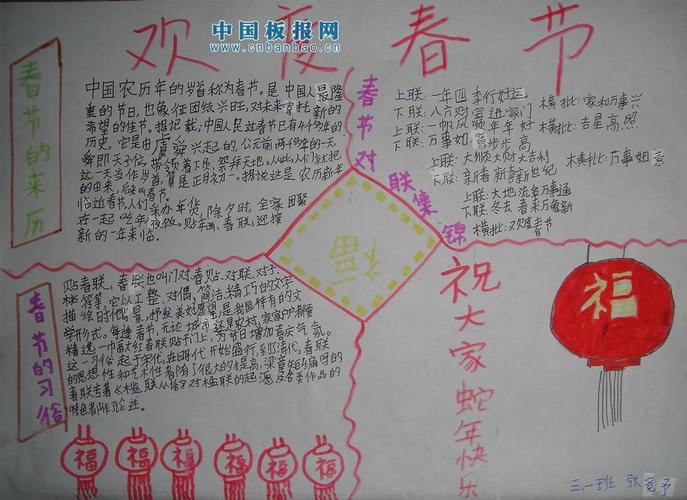 欢度春节
中国板报网
www.cnbanbao.cn
春节的来历
中国农历年的岁首称为春节。是中国人最隆
重的节日,也象征团结兴旺,对未来寄托新的
希望的佳节。据记载,中国人民过春节已有4千多年的
历史,它是由虞舜兴起的。公元前两千多年的一天,
舜即天子位,带领着下属,祭拜天地。从此,人们就把
这一天当作岁首,算是正月初一。据说这是农历新年
的由来,后来叫春节。
临近春节人们采办年货,除夕时,全家团聚
在一起吃年夜饭。贴年画、春联,迎接
新的一年来临。
春节对联集锦
上联:一年四季行好运
下联:八方财宝进家门
横批:家和万事兴
上联:一帆风顺年年好
下联:万事如意步步高
横批:吉星高照
上联:大顺大财大吉利
下联:新春新喜新世纪
横批:万事如意
上联:大地流金万事通
下联:冬去春来万象新
横批:欢度春节
福
春节的习俗
贴春联,春联也叫门对、春贴、对联、对子、
桃符等,它以工整、对偶、简洁、精巧的文字
描绘时代背景,抒发美好愿望,是我国特有的文
学形式。每逢春节,无论城市还是农村,家家户户都要
精选一幅大红春联贴于门上,为节日增加喜庆气氛。
这一习俗起于宋代,在明代开始盛行,到了清代,春联
的思想性和艺术性都有了很大的提高,梁章矩编写的
春联专著《槛联丛话》对楹联的起源及各类作品的
特色都作了论述。
祝大家蛇年快乐
福
福
福
福
福
福
福
三.一班 张